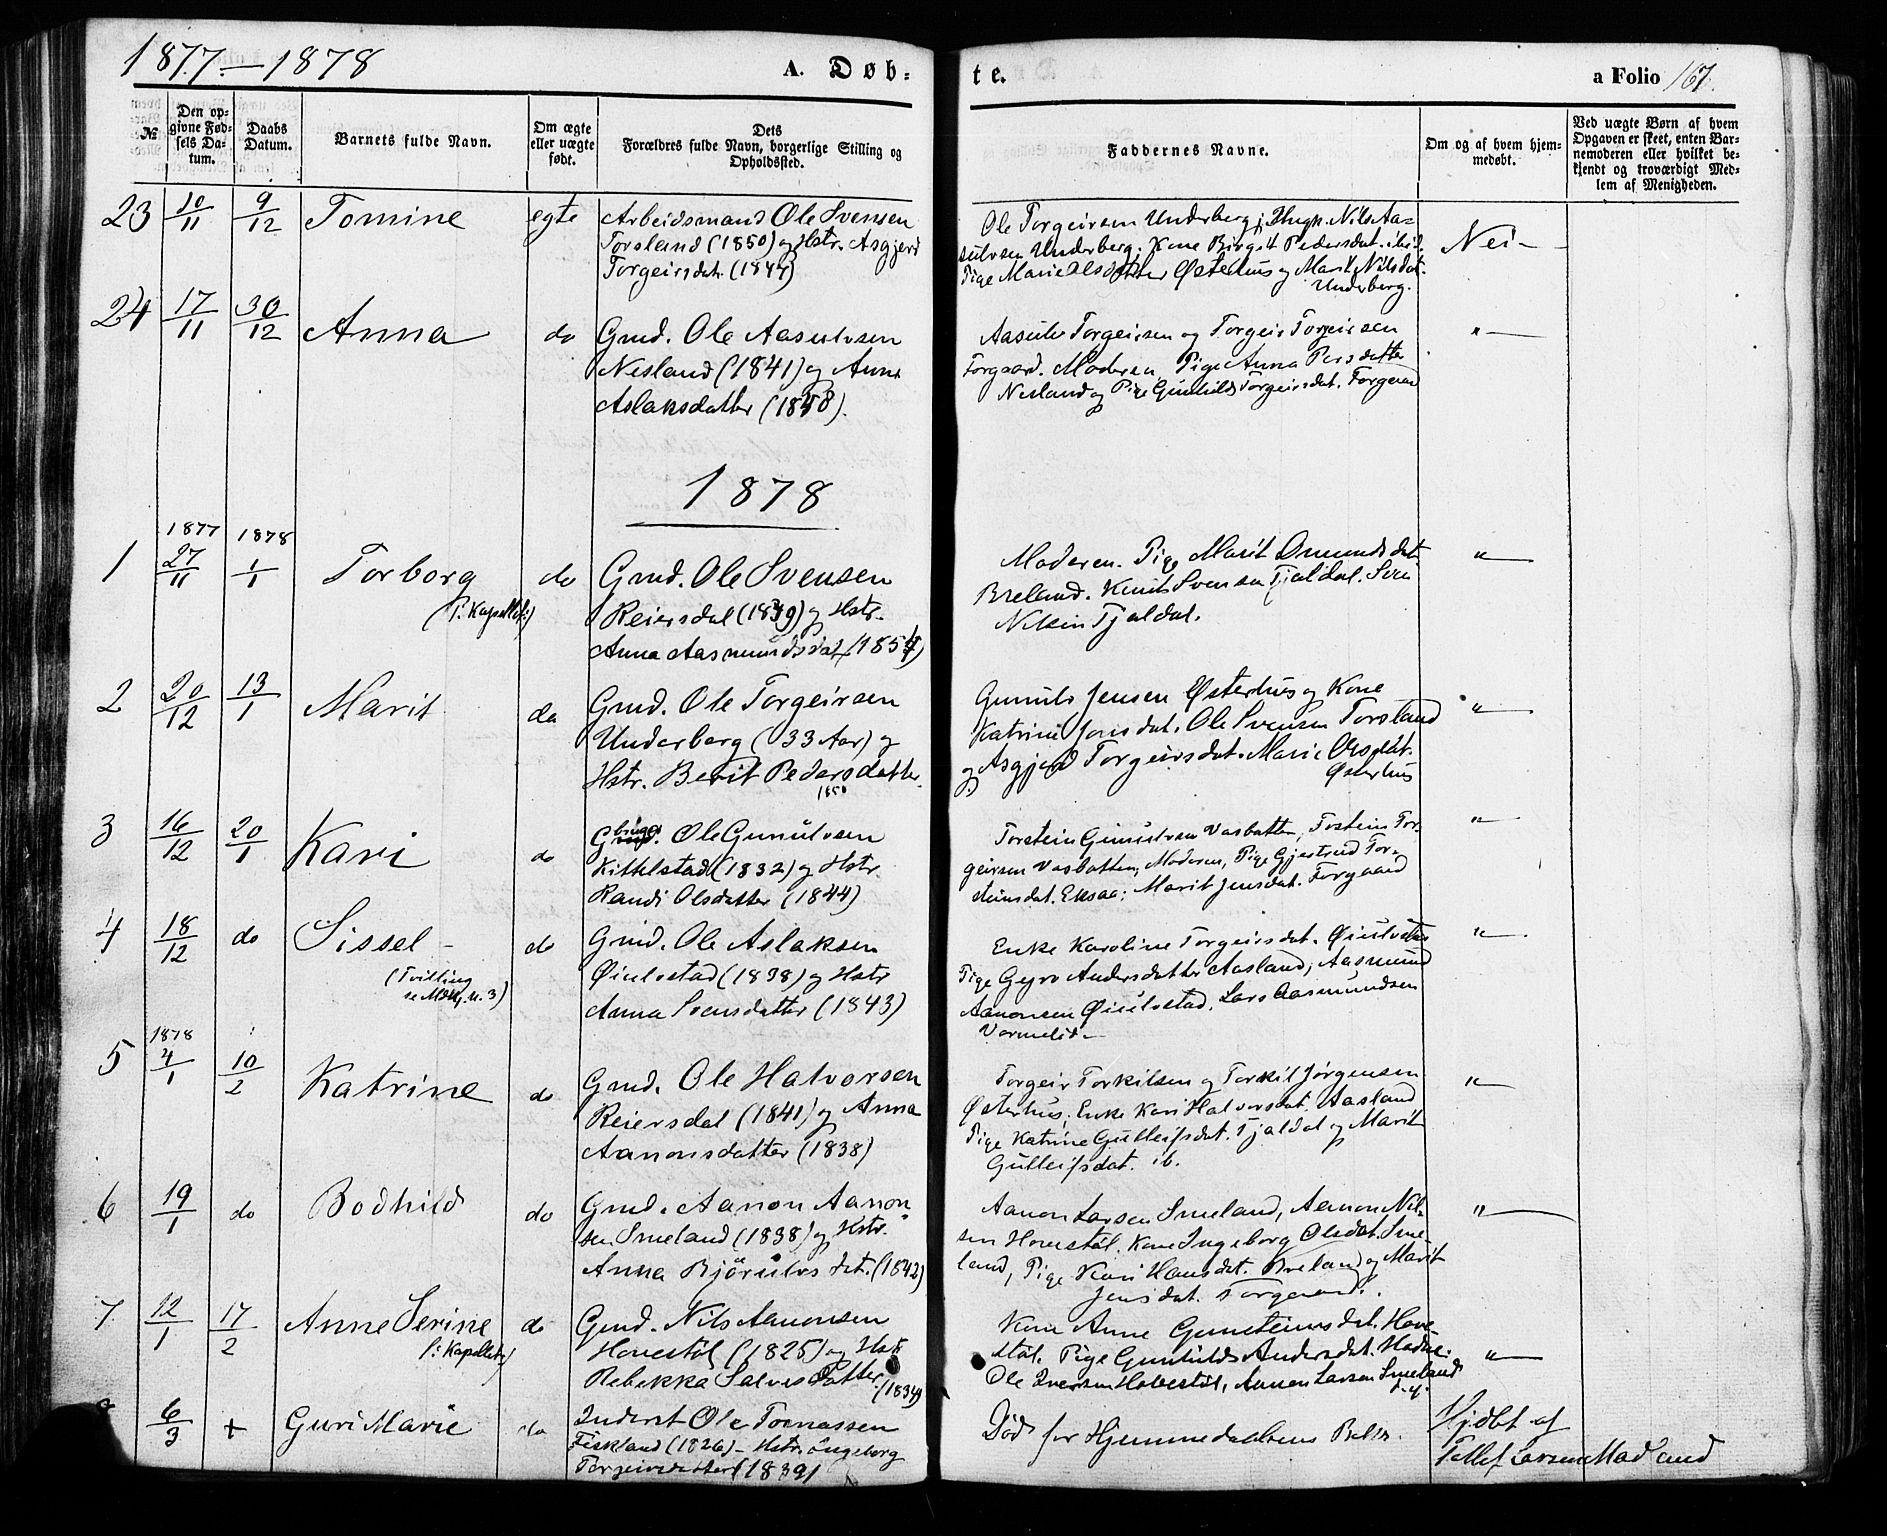 1877 – 1878
A. Døb-
te.
a Folio 167.
№
Den op-
givne Fød-
sels Da-
tum.
Daabs
Datum.
Barnets fulde Navn.
Om ægte
eller uægte
født.
Dets
Forældres fulde Navn, borgerlige Stilling og
Opholdssted.
Faddernes Navne.
Om og af hvem hjem-
medøbt.
Ved uægte Børn af hvem
Opgaven er skeet, enten Bar-
nemoderen eller hvilket be-
kjendt og troværdigt Med-
lem af Menigheden.
23 10/11 9/12 Tomine egte Arbeidsmand Ole Svensen
Torsland (1850) og Hstr. Asgjerd
Torgeirsdat. (1844)
Ole Torgeirsen Underberg, Ungk. Nils Aa-
sulvsen Underberg. Kone Birgit Pedersdat. ibid.
Pige Marie Olsdatter Østerhus og Marit Nilsdat.
Underberg.
Nei –
24 17/11 30/12 Anna do Gmd. Ole Aasulvsen
Nesland (1841) og Anne
Aslaksdatter (1848).
Aasulv Torgeirsen og Torgeir Torgeirsen
Forgaard. Moderen, Pige Anna Persdatter
Nesland og Pige Gunhild Torgeirsdat. Forgaard
" –
1878
1 1877 27/11 1878 1/1 Torborg do Gmd. Ole Svensen
(i Kapellet)
Reiersdal (1839) og Hstr.
Anna Aasmundsdat. (1854)
Moderen. Pige Marit Omundsdat.
Breland. Knut Svensen Tjaldal. Sven
Nilsen Tjaldal.
" –
2 20/12 13/1 Marit do Gmd. Ole Torgeirsen
Underberg (33 Aar) og
Hstr. Berit Pedersdatter
1850
Gunulv Jensen Østerhus og Kone
Katrine Jonsdat. Ole Svensen Torsland
og Asgjerd Torgeirsdat. Marie Olsdat.
Østerhus
" –
3 16/12 20/1 Kari do Gbruger. Ole Gunulvsen
Kittelstad (1832) og Hstr.
Randi Olsdatter (1844)
Torstein Gunulvsen Vasbotten, Tostein Tor-
geirsen Vasbotten, Moderen, Pige Gjertrud Tor-
steinsdat. Eksaa; Marit Jensdat. Forgaard
" –
4 18/12 do Sissel – do Gmd. Ole Aslaksen
(Tvilling
se n. 3)
Øiulvstad (1838) og Hstr
Anna Svensdatter (1843)
Enke Karoline Torgeirsdat. Øiulvstad
Pige Gyro Andersdatter Aasland, Aasmund
Aanonsen Øiulvstad. Lars Aasmundsen
Vormelid –
" –
5 1878 4/1 10/2 Katrine do Gmd. Ole Halvorsen
Reiersdal (1841) og Anna
Aanonsdatter (1838)
Torgeir Torkilsen og Torkil Jørgensen
Østerhus; Enke Kari Halvorsdat. Aasland
Pige Katrine Gulleifsdat. Tjaldal og Marit
Gulleifsdat. ib.
" –
6 19/1 do Bodhild do Gmd. Aanon Aanon-
sen Smeland (1838) og Hstr.
Anna Bjørulvsdat. (1842)
Aanon Larsen Smeland, Aanon Nil-
sen Hovestøl. Kone Ingeborg Olsdat. Sme-
land, Pige Kari Hansdat. Breland og Marit
Jensdat. Forgaard.
" –
7 12/1 17/2 Anne Serine do Gmd. Nils Aanonsen
(i Kapellet)
Hovestøl (1825) og Hstr
Rebekka Salvesdatter. (1834)
Kone Anne Gunsteinsdat. Hove-
støl. Pige Gunhild Andersdat.
Ole Iversen Hovestøl, Aanon Larsen Smeland
" –
6/3 + Guri Marie do Inderst Ole Tomassen
Fiskland (1826) – Hstr. Ingeborg
Torgeirsdatter (1839)
Død før Hjemmedaabens
Hjdbt af
Tellef Larsen Madland